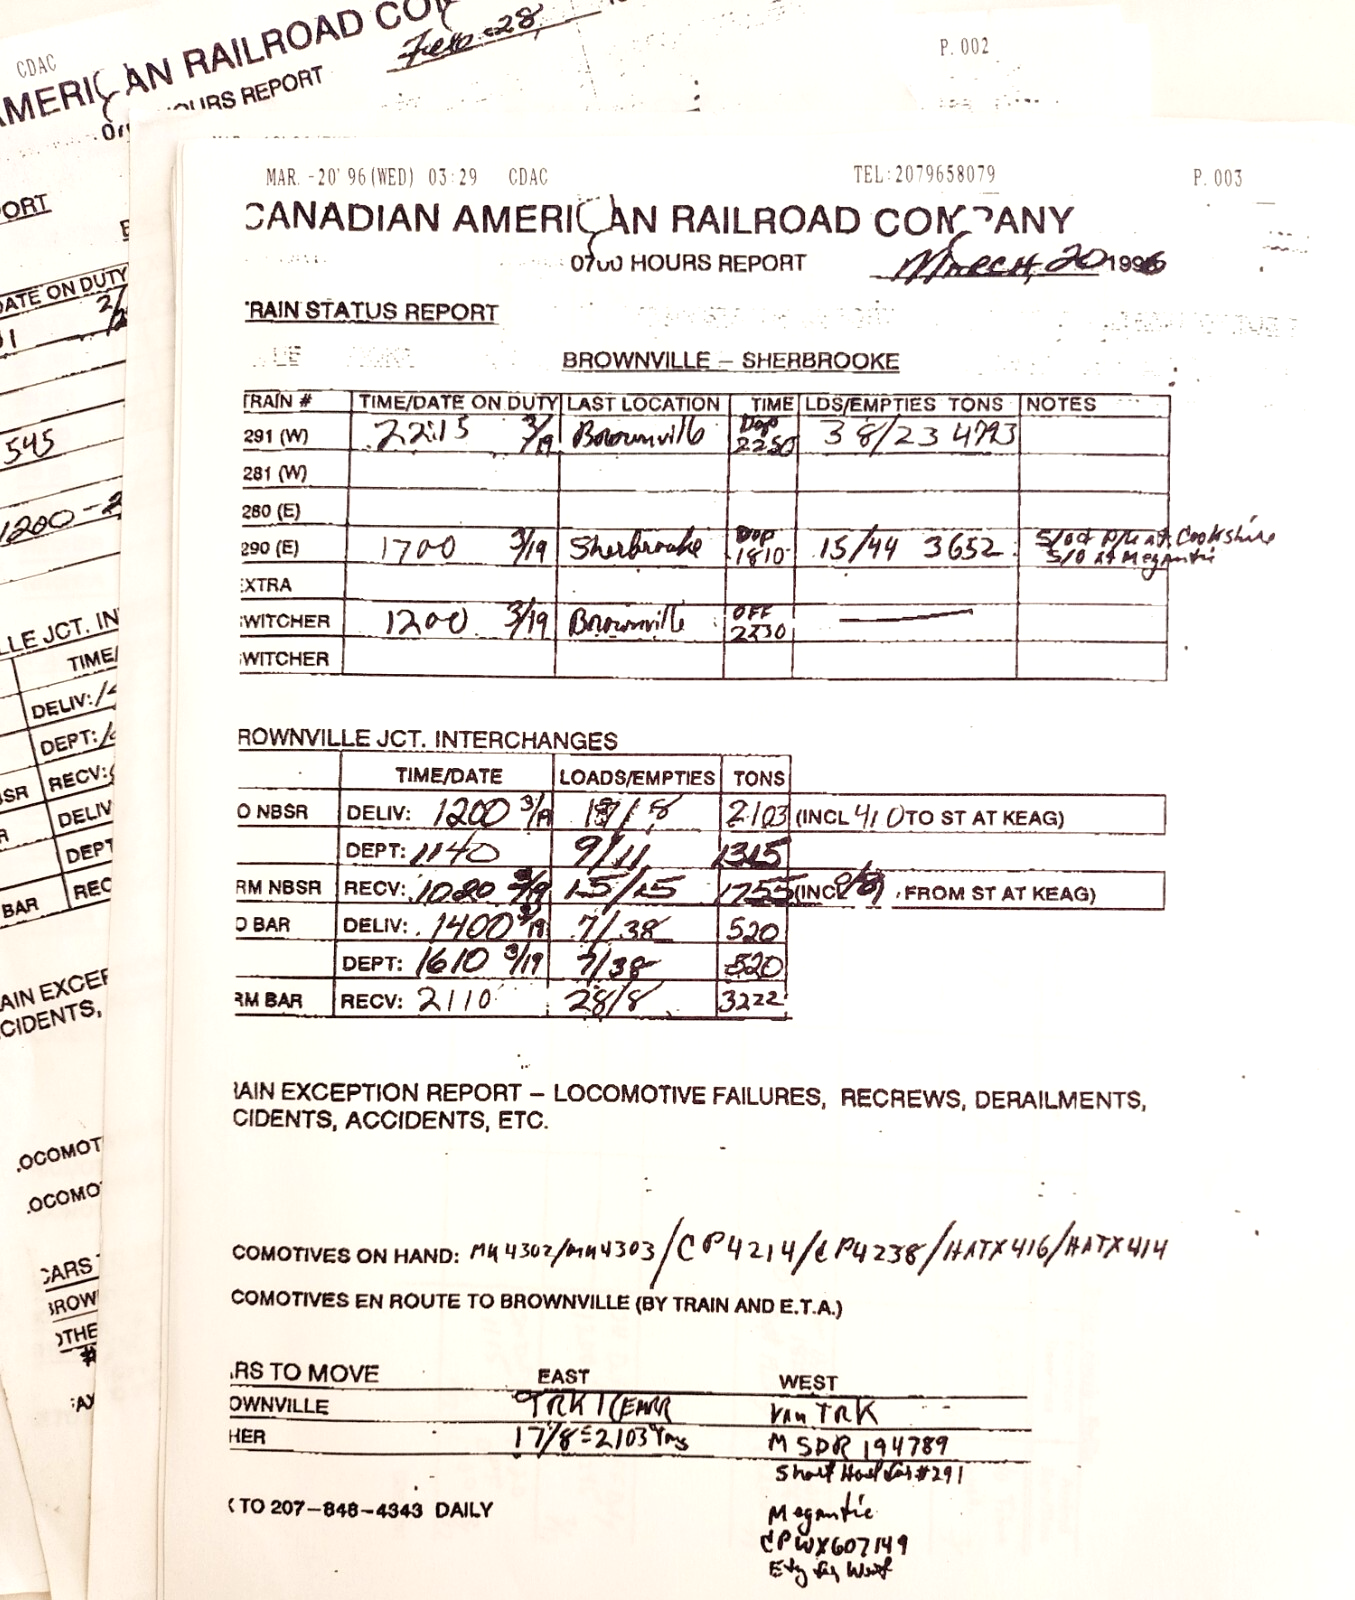 CDAC
P. 002
AMERICAN RAILROAD CO
Feb 28,
OURS REPORT
PORT
DATE ON DUTY
545
1200-2
LLE JCT. IN
TIME/
DELIV:
DEPT:
BSR RECV:
DELIV
DEPT
BAR REC
AIN EXCEF
CIDENTS,
.OCOMOT
.OCOMO
CARS
BROW
OTHE
#
MAR. -20' 96(WED) 03:29 CDAC TEL:2079658079 P. 003
CANADIAN AMERICAN RAILROAD COMPANY
0700 HOURS REPORT March, 20 1996
TRAIN STATUS REPORT
BROWNVILLE – SHERBROOKE
TRAIN # TIME/DATE ON DUTY LAST LOCATION TIME LDS/EMPTIES TONS NOTES
291 (W) 2215 3/19 Brownville Dep 2250 38/23 4793
281 (W)
280 (E)
290 (E) 1700 3/19 Sherbrooke Dep 1810 15/44 3652 S/O at Cookshire
S/O at Megantic
EXTRA
SWITCHER 1200 3/19 Brownville OFF 2230
SWITCHER
ROWNVILLE JCT. INTERCHANGES
TIME/DATE LOADS/EMPTIES TONS
O NBSR DELIV: 1200 3/19 17/8 2103 (INCL 4/0 TO ST AT KEAG)
DEPT: 1140 9/11 1315
RM NBSR RECV: 1020 3/19 15/15 1755 (INCL FROM ST AT KEAG)
O BAR DELIV: 1400 3/19 7/38 520
DEPT: 1610 3/19 7/38 520
RM BAR RECV: 2110 28/8 3222
RAIN EXCEPTION REPORT – LOCOMOTIVE FAILURES, RECREWS, DERAILMENTS,
CIDENTS, ACCIDENTS, ETC.
COMOTIVES ON HAND: MK4302/MK4303/CP4214/CP4238/HATX416/HATX414
COMOTIVES EN ROUTE TO BROWNVILLE (BY TRAIN AND E.T.A.)
RS TO MOVE EAST WEST
OWNVILLE TRK 1 CLEAR Van TRK
HER 17/8=2103 Tns MSDR 194789
Short Haul for #291
TO 207-848-4343 DAILY Megantic
CPWX607149
Ety for West